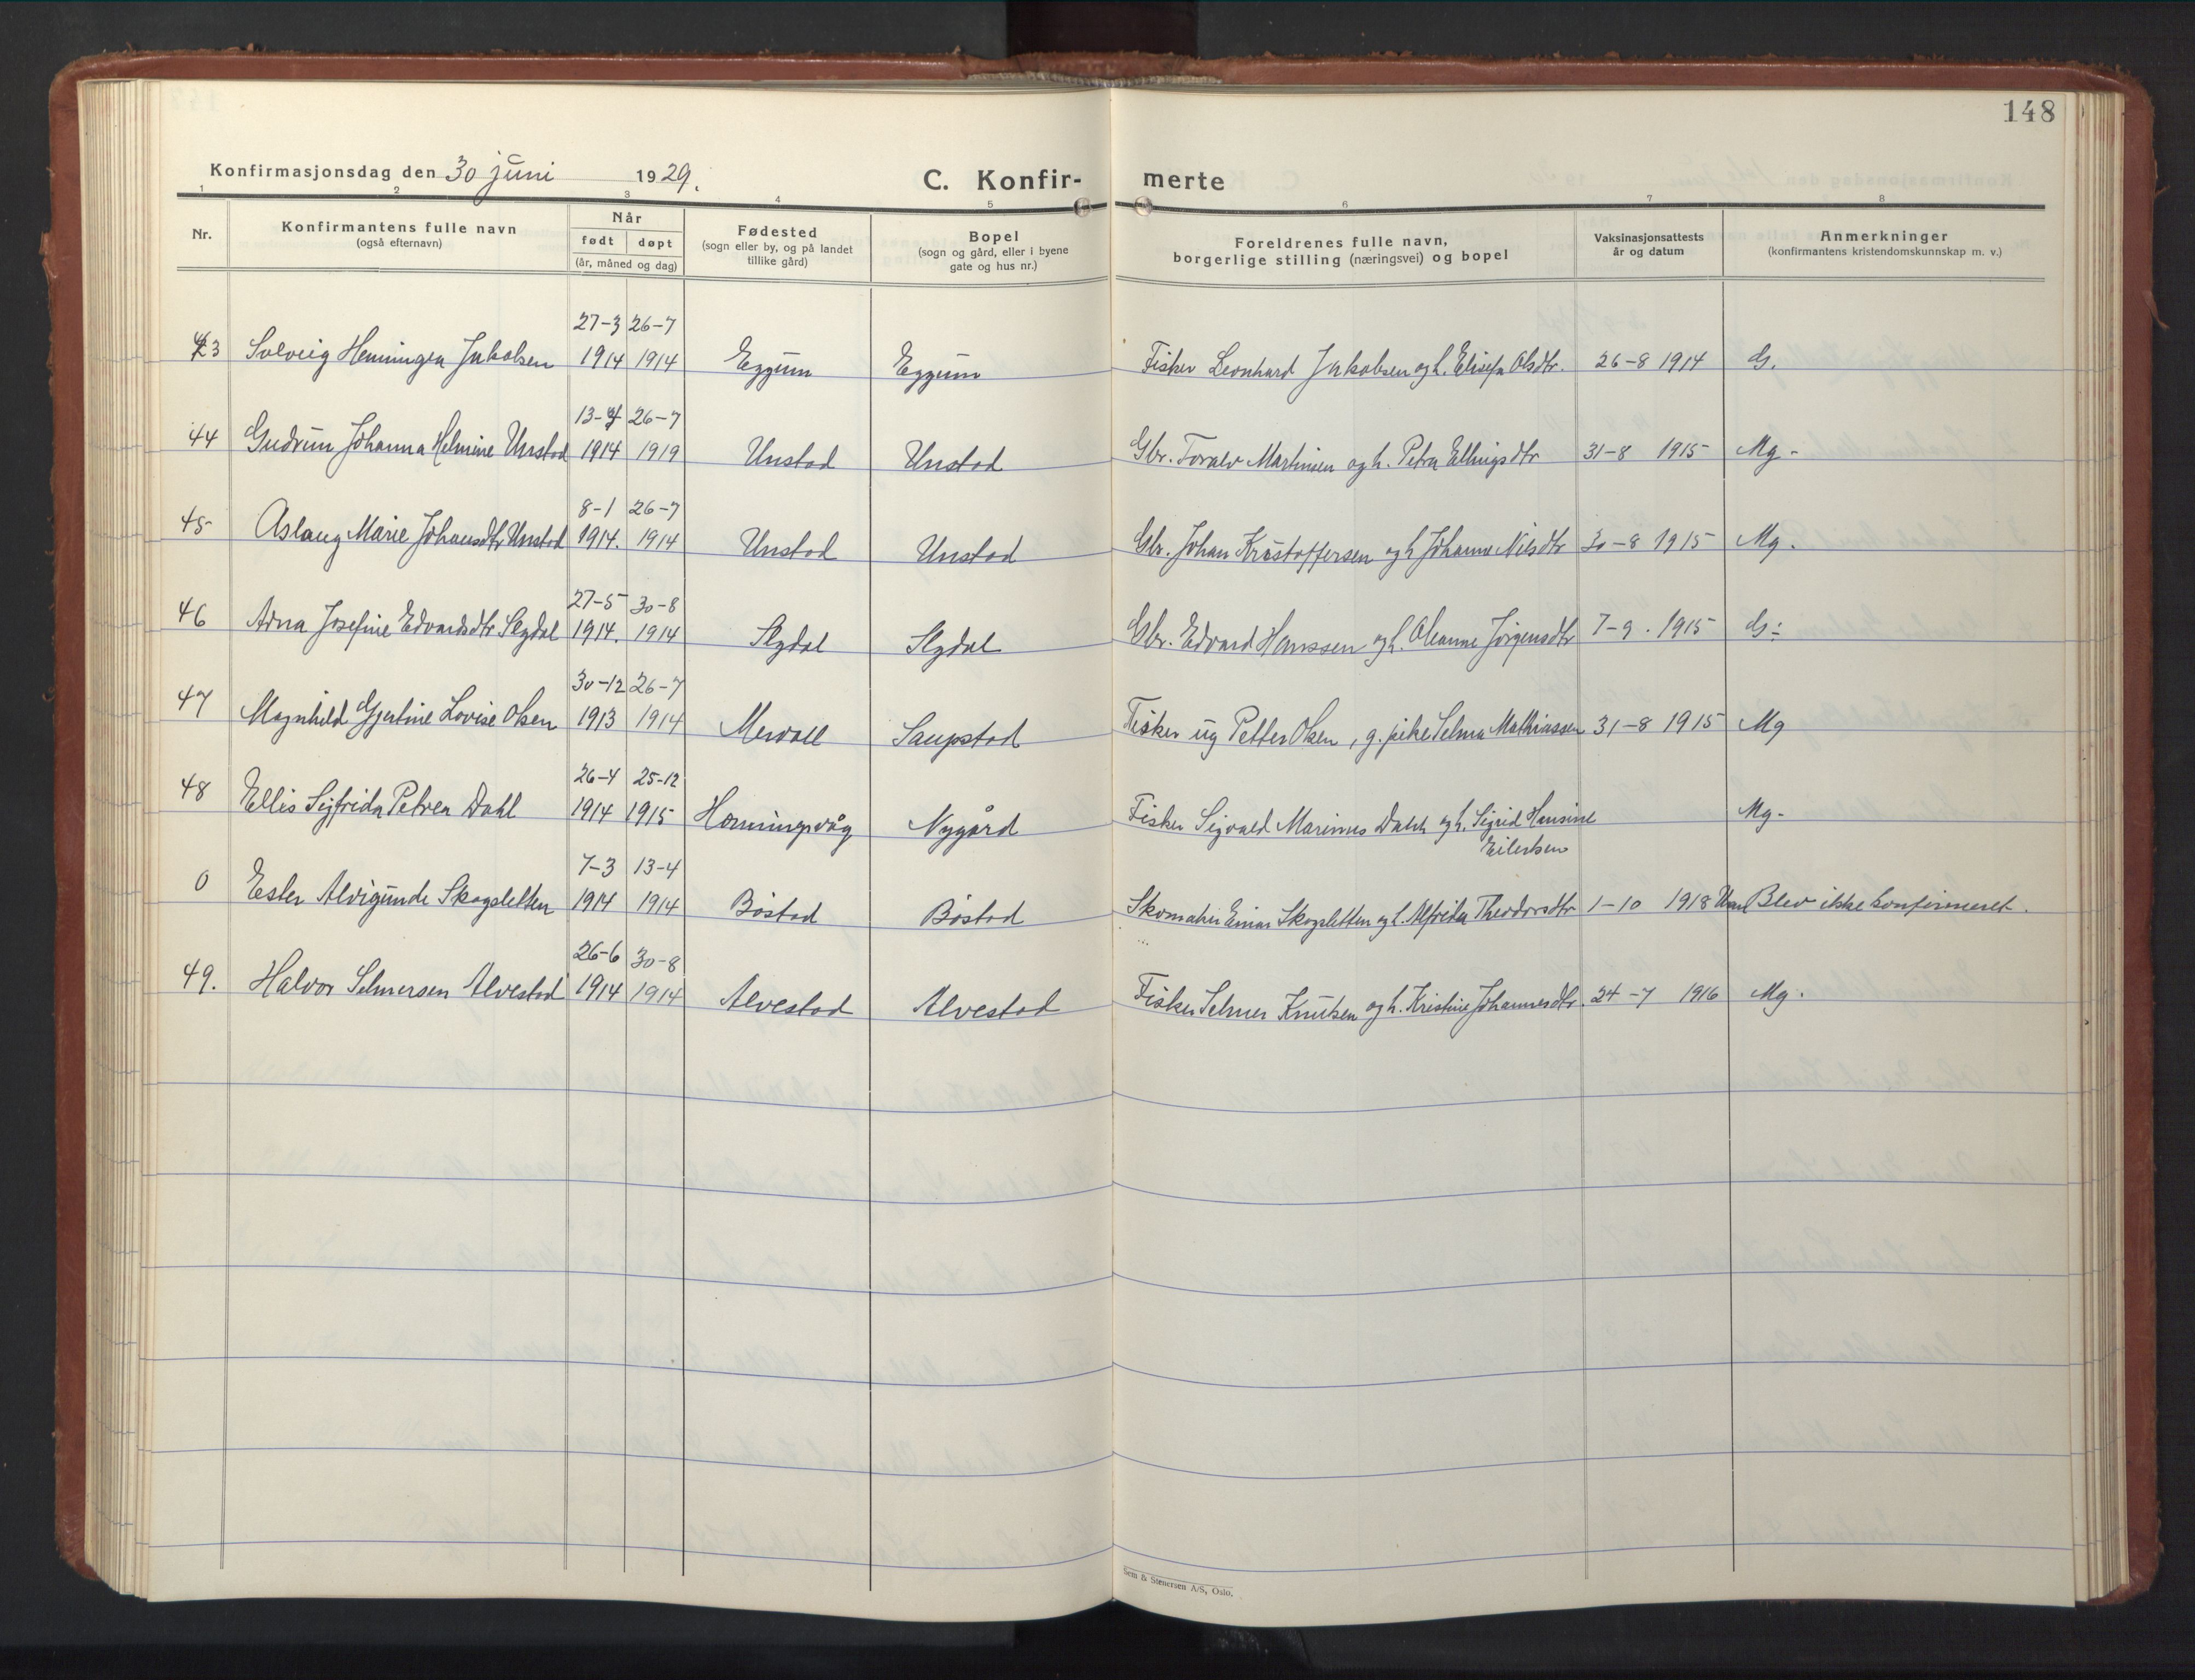 148
Konfirmasjonsdag den 30 juni 1929.
C. Konfir- merte
1 2 3 4 5 6 7 8
Nr.
Konfirmantens fulle navn
(også efternavn)
Når
født døpt
(år, måned og dag)
Fødested
(sogn eller by, og på landet
tillike gård)
Bopel
(sogn og gård, eller i byene
gate og hus nr.)
Foreldrenes fulle navn,
borgerlige stilling (næringsvei) og bopel
Vaksinasjonsattests
år og datum
Anmerkninger
(konfirmantens kristendomskunnskap m. v.)
27-3 26-7
43 Solveig Henningea Jakobsen 1914 1914 Eggum Eggum Fisker Leonhard Jakobsen og h. Elisefa Olsdtr. 26-8 1914 G.
13-4 26-7
44 Gudrun Johanna Helmine Unstad 1914 1919 Unstad Unstad Gbr. Toralv Martinsen og h. Petra Ellingsdtr 31-8 1915 Mg-
8-1 26-7
45 Aslaug Marie Johansdtr Unstad 1914. 1914 Unstad Unstad Gbr. Johan Kristoffersen og h Johanna Nilsdtr 30-8 1915 Mg.
27-5 30-8
46 Arna Josefine Edvardsdtr Slydal 1914. 1914 Slydal Slydal Gbr. Edvard Hanssen og h. Oleanne Jørgensdtr 7-9. 1915 G:
30-12 26-7
47 Magnhild Gjertine Lovise Olsen 1913 1914 Mervoll Saupstad Fisker ug Petter Olsen, g. pike Selma Mathiassen 31-8 1915 Mg
26-4 25-12
48 Ellis Sigfrida Petrea Dahl 1914 1915 Honningsvåg Nygård Fisker Sigvald Marinus Dahl og h. Sigrid Hansine Mg-
Eilertsen
7-3 13-4
0 Ester Alvigunde Skogsletten 1914 1914 Bøstad Bøstad Skomaker Einar Skogsletten og h. Alfrida Theodorsdtr 1-10 1918 Blev ikke konfirmeret.
26-6 30-8
49. Halvor Selmersen Alvestad 1914 1914 Alvestad Alvestad Fisker Selmer Knutsen og h. Kristine Johannesdtr. 24-7 1916 Mg.
Sem & Stenersen A/S, Oslo.